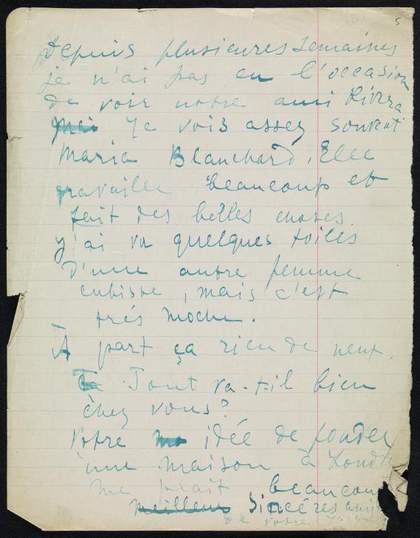 5
Depuis plusieures semaines
je n'ai pas eu l'occasion
de voir notre ami Rivera
Je vois assez souvent
Maria Blanchard. Elle
travaille beaucoup et
fait des belles choses
y'ai vu quelques toiles
D'une autre femme
cubiste, mais c'est
trés moche.
À part ça rien de neuf.
Tout va-t-il bien
chez vous?
Votre idée de fonder
une maison à
me plait beaucoup
meilleurs Sincéres
de votre